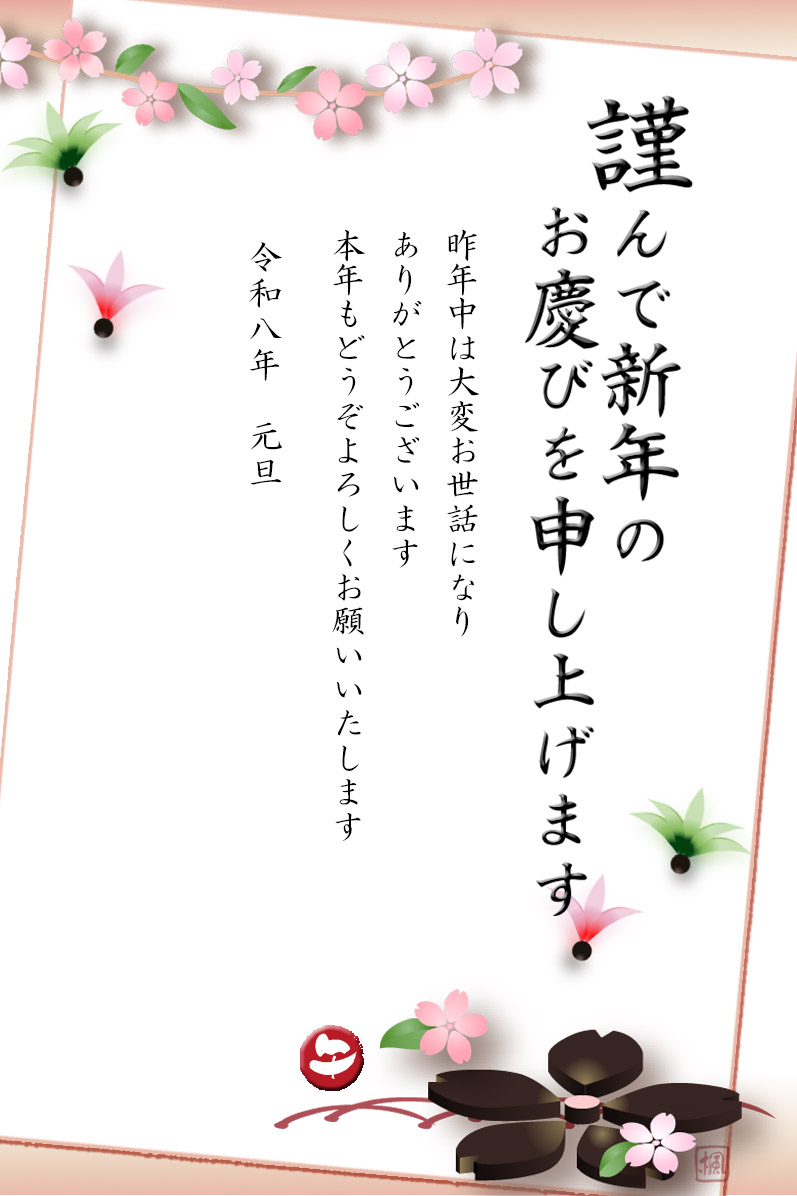 謹んで新年の
お慶びを申し上げます
昨年中は大変お世話になり
ありがとうございます
本年もどうぞよろしくお願いいたします
令和八年　元旦
楓